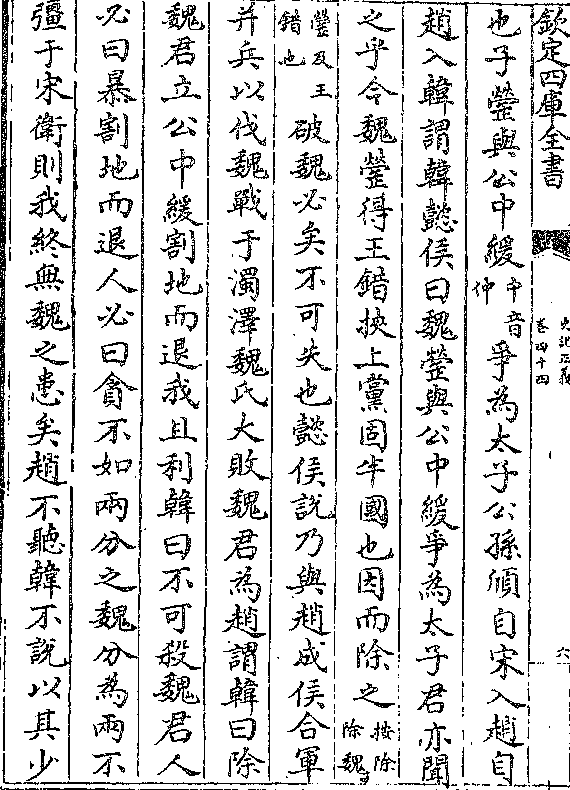 欽定四庫全書
史記正義
卷四十四
六
也子罃與公中緩中音仲爭為太子公孫頎自宋入趙自
趙入韓謂韓懿侯曰魏罃與公中緩爭為太子君亦聞
之乎今魏罃得王錯挾上黨固半國也因而除之按除除魏
罃及王錯也破魏必矣不可失也懿侯說乃與趙成侯合軍
并兵以伐魏戰于濁澤魏氏大敗魏君為趙謂韓曰除
魏君立公中緩割地而退我且利韓曰不可殺魏君人
必曰暴割地而退人必曰貪不如兩分之魏分為兩不
彊于宋衛則我終無魏之患矣趙不聽韓不說以其少